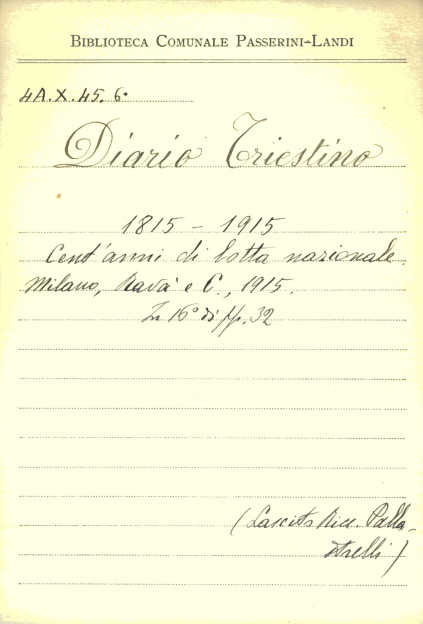 BIBLIOTECA COMUNALE PASSERINI-LANDI
4A.X.45.6º
Diario Triestino
1815 - 1915
Cent'anni di lotta nazionale.
Milano, Ravà e C., 1915.
In 16º di pp. 32
(Lascito Ricc. Palla-
strelli)